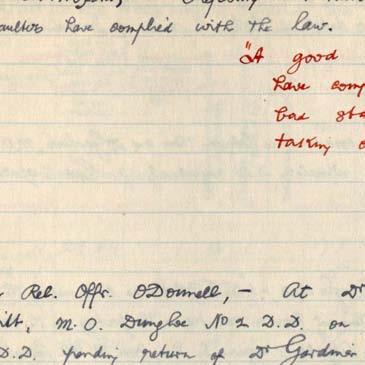 aulters have complied with the law.
"A good
have comp
bad sta
taking o
Rel. Offr. O'Donnell, - At Dr
ilt, M.O. Dungloe No 2 D.D. on
D.D. pending return of Dr Gardiner